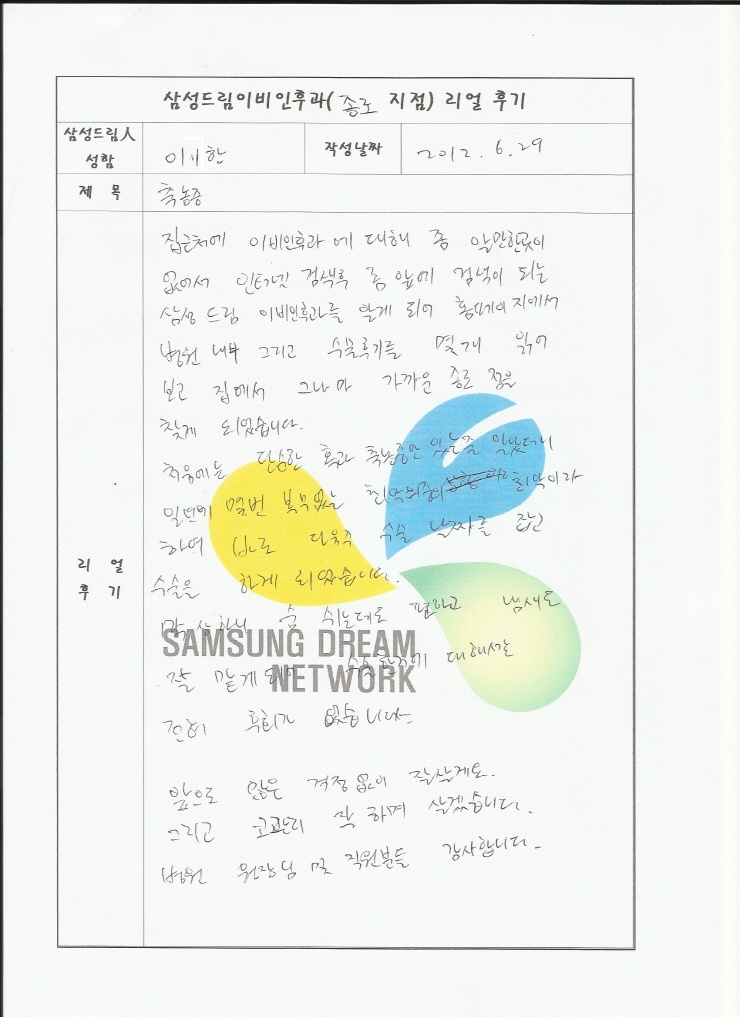 삼성드림이비인후과(종로 지점) 리얼 후기
삼성드림人 성함
이시한
작성날짜
2012. 6. 29
제 목
축농증
리 얼 후 기
집근처에 이비인후과에 대해 좀 알만한곳이
없어서 인터넷 검색후 좀 앞에 검색이 되는
삼성 드림 이비인후과를 알게 되어 홈페이지에서
병원 내부 그리고 수술후기를 몇개 읽어
보고 집에서 그나마 가까운 종로 점을
찾게 되었습니다.
처음에는 단순한 축농증만 있는줄 알았더니
몇번 최악이라
하여 바로 다음주 수술 날짜를 잡던
수술을 하게 되었습니다.
숨 쉬는데도 편하고 냄새도
잘 맡게 되어 대해서는
전혀 후회가 없습니다.
앞으로 잃은 걱정없이 잘살게요.
그리고 코관리 잘 하며 살겠습니다.
병원 원장님 및 직원분들 감사합니다.
SAMSUNG DREAM
NETWORK